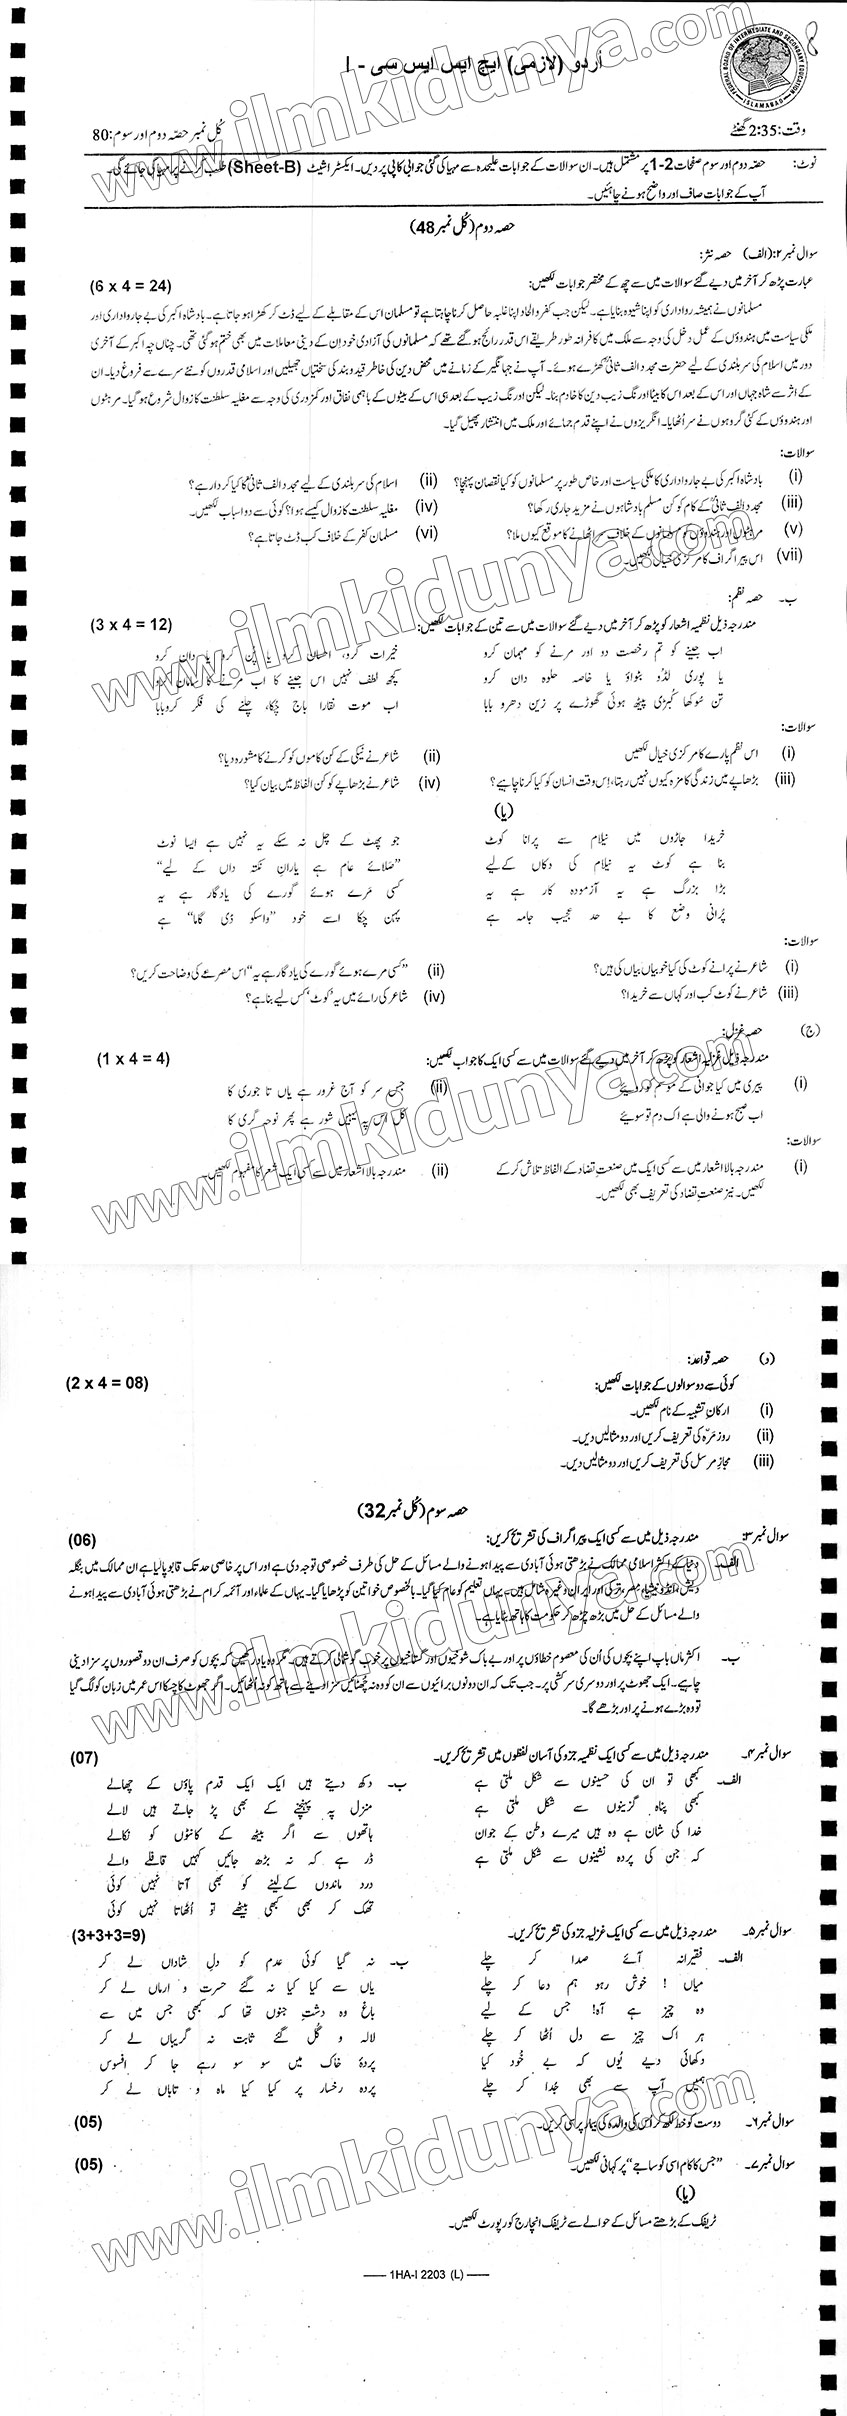 FEDERAL BOARD OF INTERMEDIATE AND SECONDARY EDUCATION
ISLAMABAD
8
اُردو (لازمی) ایچ ایس ایس سی - I
وقت: 2:35 گھنٹے
کُل نمبر حصّہ دوم اور سوم: 80
نوٹ: حصّہ دوم اور سوم صفحات 2-1 پر مشتمل ہیں۔ ان سوالات کے جوابات علیحدہ سے مہیا کی گئی جوابی کاپی پر دیں۔ ایکسٹرا شیٹ (Sheet-B) طلب کرنے پر مہیا کی جائے گی۔
آپ کے جوابات صاف اور واضح ہونے چاہئیں۔
حصہ دوم (کُل نمبر 48)
سوال نمبر ۲: (الف) حصہ نثر:
عبارت پڑھ کر آخر میں دیے گئے سوالات میں سے چھ کے مختصر جوابات لکھیں: (6 x 4 = 24)
مسلمانوں نے ہمیشہ رواداری کو اپنا شیوہ بنایا ہے۔ لیکن جب کفر و الحاد اپنا غلبہ حاصل کرنا چاہتا ہے تو مسلمان اس کے مقابلے کے لیے ڈٹ کر کھڑا ہو جاتا ہے۔ بادشاہ اکبر کی بے جا رواداری اور
ملکی سیاست میں ہندوؤں کے عمل دخل کی وجہ سے ملک میں کافرانہ طور طریقے اس قدر رائج ہو گئے تھے کہ مسلمانوں کی آزادی خود ان کے دینی معاملات میں بھی ختم ہو گئی تھی۔ چناں چہ اکبر کے آخری
دور میں اسلام کی سربلندی کے لیے حضرت مجدد الف ثانیؒ کھڑے ہوئے۔ آپ نے جہانگیر کے زمانے میں محض دین کی خاطر قید و بند کی سختیاں جھیلیں اور اسلامی قدروں کو نئے سرے سے فروغ دیا۔ ان
کے اثر سے شاہ جہاں اور اس کے بعد اس کا بیٹا اورنگ زیب دین کا خادم بنا۔ لیکن اورنگ زیب کے بعد ہی اس کے بیٹوں کے باہمی نفاق اور کمزوری کی وجہ سے مغلیہ سلطنت کا زوال شروع ہو گیا۔ مرہٹوں
اور ہندوؤں کے کئی گروہوں نے سر اُٹھایا۔ انگریزوں نے اپنے قدم جمائے اور ملک میں انتشار پھیل گیا۔
سوالات:
(i) بادشاہ اکبر کی بے جا رواداری کا ملکی سیاست اور خاص طور پر مسلمانوں کو کیا نقصان پہنچا؟ (ii) اسلام کی سربلندی کے لیے مجدد الف ثانیؒ کا کیا کردار ہے؟
(iii) مجدد الف ثانیؒ کے کام کو کن مسلم بادشاہوں نے مزید جاری رکھا؟ (iv) مغلیہ سلطنت کا زوال کیسے ہوا؟ کوئی سے دو اسباب لکھیں۔
(v) مرہٹوں اور ہندوؤں کو مسلمانوں کے خلاف سر اٹھانے کا موقع کیوں ملا؟ (vi) مسلمان کفر کے خلاف کب ڈٹ جاتا ہے؟
(vii) اس پیراگراف کا مرکزی خیال لکھیں۔
ب۔ حصہ نظم:
مندرجہ ذیل نظمیہ اشعار کو پڑھ کر آخر میں دیے گئے سوالات میں سے تین کے جوابات لکھیں: (3 x 4 = 12)
اب جینے کو تم رخصت دو اور مرنے کو مہمان کرو خیرات کرو، احسان کرو یا پُن کرو یا دان کرو
یا پوری لڈّو بنواؤ یا خاصہ حلوہ دان کرو کچھ لطف نہیں اس جینے کا اب مرنے کا سامان کرو
تن سُوکھا کُبڑی پیٹھ ہوئی گھوڑے پر زین دھرو بابا اب موت نقارا باج چُکا، چلنے کی فکر کرو بابا
سوالات:
(i) اس نظم پارے کا مرکزی خیال لکھیں (ii) شاعر نے نیکی کے کن کاموں کو کرنے کا مشورہ دیا؟
(iii) بڑھاپے میں زندگی کا مزہ کیوں نہیں رہتا، اِس وقت انسان کو کیا کرنا چاہیے؟ (iv) شاعر نے بڑھاپے کو کن الفاظ میں بیان کیا؟
(یا)
خریدا جاڑوں میں نیلام سے پرانا کوٹ جو پھٹ کے چل نہ سکے یہ نہیں ہے ایسا نوٹ
بنا ہے کوٹ یہ نیلام کی دکاں کے لیے "صلائے عام ہے یارانِ نکتہ داں کے لیے"
بڑا بزرگ ہے یہ آزمودہ کار ہے یہ کسی مرے ہوئے گورے کی یادگار ہے یہ
پُرانی وضع کا بے حد عجیب جامہ ہے پہن چکا اسے خود "واسکو ڈی گاما" ہے
سوالات:
(i) شاعر نے پرانے کوٹ کی کیا خوبیاں بیاں کی ہیں؟ (ii) "کسی مرے ہوئے گورے کی یادگار ہے یہ" اس مصرعے کی وضاحت کریں؟
(iii) شاعر نے کوٹ کب اور کہاں سے خریدا؟ (iv) شاعر کی رائے میں یہ "کوٹ" کس لیے بنا ہے؟
(ج) حصہ غزل:
مندرجہ ذیل غزلیہ اشعار کو پڑھ کر آخر میں دیے گئے سوالات میں سے کسی ایک کا جواب لکھیں: (1 x 4 = 4)
(i) پیری میں کیا جوانی کے موسم کو رویئے (ii) جس سر کو آج غرور ہے یاں تاجوری کا
اب صبح ہونے والی ہے اک دم تو سویئے کل اس پہ یہیں شور ہے پھر نوحہ گری کا
سوالات:
(i) مندرجہ بالا اشعار میں سے کسی ایک میں صنعتِ تضاد کے الفاظ تلاش کر کے (ii) مندرجہ بالا اشعار میں سے کسی ایک شعر کا مفہوم لکھیں۔
لکھیں۔ نیز صنعتِ تضاد کی تعریف بھی لکھیں۔
(د) حصہ قواعد:
کوئی سے دو سوالوں کے جوابات لکھیں: (2 x 4 = 08)
(i) ارکانِ تشبیہ کے نام لکھیں۔
(ii) روزمرّہ کی تعریف کریں اور دو مثالیں دیں۔
(iii) مجاز مرسل کی تعریف کریں اور دو مثالیں دیں۔
حصہ سوم (کُل نمبر 32)
سوال نمبر ۳: مندرجہ ذیل میں سے کسی ایک پیراگراف کی تشریح کریں: (06)
الف۔ دنیا کے اکثر اسلامی ممالک نے بڑھتی ہوئی آبادی سے پیدا ہونے والے مسائل کے حل کی طرف خصوصی توجہ دی ہے اور اس پر خاصی حد تک قابو پا لیا ہے ان ممالک میں بنگلہ
دیش، انڈونیشیا، مصر، ترکی اور ایران وغیرہ شامل ہیں۔ یہاں تعلیم کو عام کیا گیا۔ بالخصوص خواتین کو پڑھایا گیا۔ یہاں کے علماء اور آئمہ کرام نے بڑھتی ہوئی آبادی سے پیدا ہونے
والے مسائل کے حل میں بڑھ چڑھ کر حکومت کا ہاتھ بٹایا ہے۔
ب۔ اکثر ماں باپ اپنے بچوں کی اُن کی معصوم خطاؤں پر اور بے باک شوخیوں اور گستاخیوں پر خوب گوشمالی کرتے ہیں۔ مگر وہ یاد رکھیں کہ بچوں کو صرف ان دو قصوروں پر سزا دینی
چاہیے۔ ایک جھوٹ پر اور دوسری سرکشی پر۔ جب تک کہ ان دونوں برائیوں سے ان کو وہ نہ چھٹائیں سزا دینے سے ہاتھ کو نہ اُٹھائیں۔ اگر جھوٹ کا چسکا اس عمر میں زبان کو لگ گیا
تو وہ بڑے ہونے پر اور بڑھے گا۔
سوال نمبر ۴۔ مندرجہ ذیل میں سے کسی ایک نظمیہ جزو کی آسان لفظوں میں تشریح کریں۔ (07)
الف۔ کبھی تو ان کی حسینوں سے شکل ملتی ہے
کبھی پناہ گزینوں سے شکل ملتی ہے
خدا کی شان ہے وہ ہیں میرے وطن کے جوان
کہ جن کی پردہ نشینوں سے شکل ملتی ہے
ب۔ دکھ دیتے ہیں ایک ایک قدم پاؤں کے چھالے
منزل پہ پہنچنے کے بھی پڑ جاتے ہیں لالے
ہاتھوں سے اگر بیٹھ کے کانٹوں کو نکالے
ڈر ہے کہ نہ بڑھ جائیں کہیں قافلے والے
درد ماندوں کے لینے کو بھی آتا نہیں کوئی
تھک کر بھی کبھی بیٹھے تو اُٹھاتا نہیں کوئی
سوال نمبر ۵۔ مندرجہ ذیل میں سے کسی ایک غزلیہ جزو کی تشریح کریں۔ (3+3+3=9)
الف۔ فقیرانہ آئے صدا کر چلے
میاں ! خوش رہو ہم دعا کر چلے
وہ چیز ہے آہ! جس کے لیے
ہر اک چیز سے دل اُٹھا کر چلے
دکھائی دیے یُوں کہ بے خُود کیا
ہمیں آپ سے بھی جُدا کر چلے
ب۔ نہ گیا کوئی عدم کو دلِ شاداں لے کر
یاں سے کیا کیا نہ گئے حسرت و ارماں لے کر
باغ وہ دشتِ جنوں تھا کہ کبھی جس میں سے
لالہ و گُل گئے ثابت نہ گریباں لے کر
پردۂ خاک میں سو سو رہے جا کر افسوس
پردہ رخسار پر کیا کیا ماہ و تاباں لے کر
سوال نمبر ۶۔ دوست کو خط لکھ کر اُس کی والدہ کی بیمار پرسی کریں۔ (05)
سوال نمبر ۷۔ "جس کا کام اسی کو ساجے" پر کہانی لکھیں۔ (05)
(یا)
ٹریفک کے بڑھتے مسائل کے حوالے سے ٹریفک انچارج کو رپورٹ لکھیں۔
—— 1HA-I 2203 (L) ——
www.ilmkidunya.com
www.ilmkidunya.com
www.ilmkidunya.com
www.ilmkidunya.com
www.ilmkidunya.com